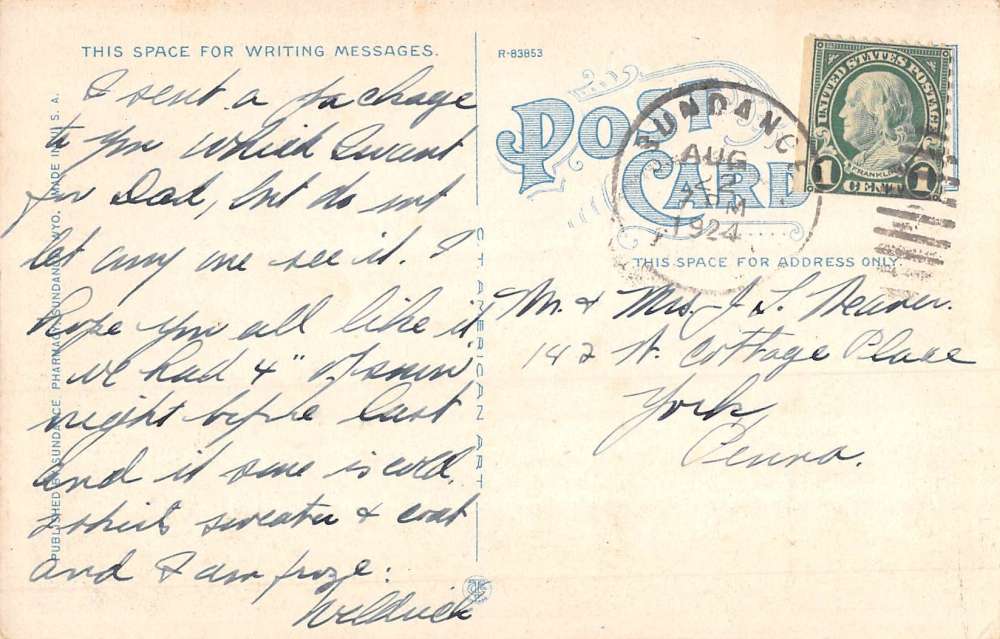 THIS SPACE FOR WRITING MESSAGES.
I sent a package
to you which I want
for Dad, but do not
let any one see it. I
hope you all like it
we had 4" of snow
night before last
and it sure is cold.
2 shirts sweater & coat
and I am froze.
PUBLISHED BY SUNDANCE PHARMACY, SUNDANCE, WYO. MADE IN U. S. A.
C. T. AMERICAN ART
R-83853
POST
CARD
SUNDANCE
AUG
2
M
1924
UNITED STATES POSTAGE
FRANKLIN
1 CENT 1
THIS SPACE FOR ADDRESS ONLY.
Mr. & Mrs. J. L. Weaver.
142 N. Cottage Place
York
Penna.